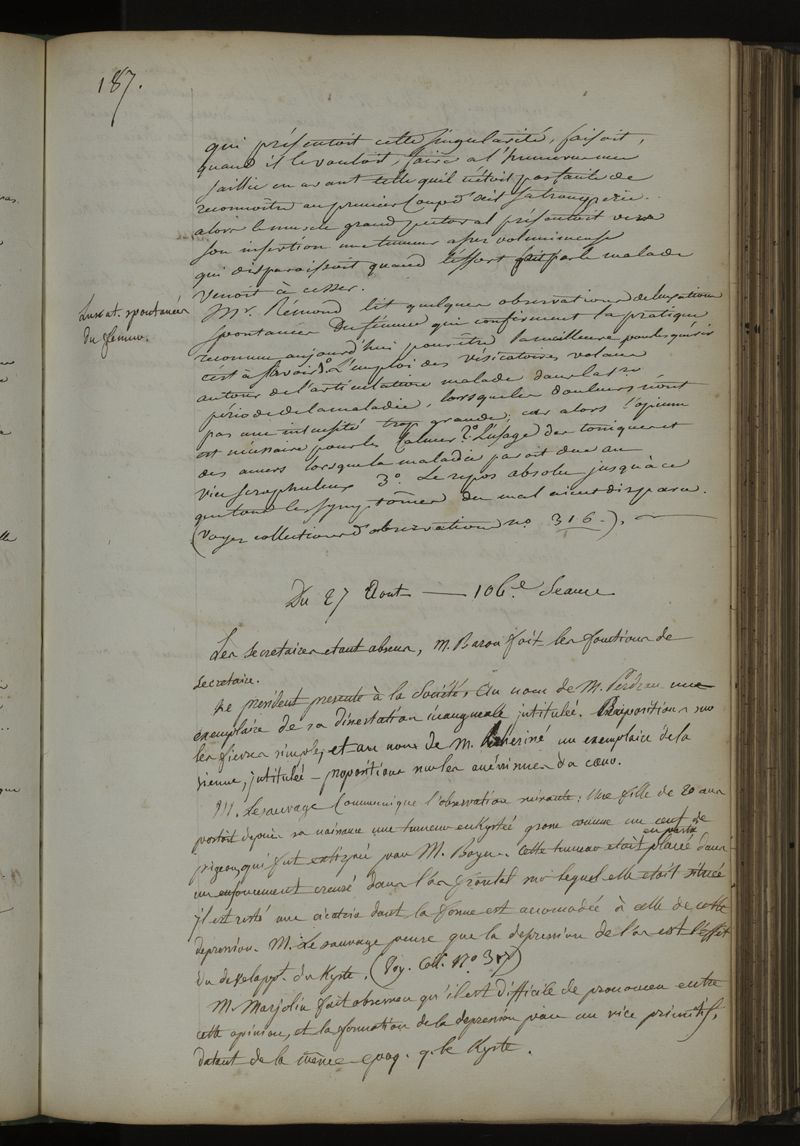 187.
qui présentoit cette singularité, faisoit,
quand il le vouloit, faire a l'humerus une
saillie en avant telle qu'il n'étoit pas facile de
reconnoitre au premier Coup d'œil sa tromperie.
alors le muscle grand pectoral présentoit vers
son insertion une tumeur assez volumineuse
qui disparaissoit quand l'effort fait par le malade
venoit à cesser.
Luxat. spontanées
du fémur.
Mr. Rémond lit quelques observations de luxations
spontanées du fémur qui confirment la pratique
reconnue aujourd'hui pour être la meilleure pour les guérir
c'est à savoir 1o. L'emploi des vésicatoires volans
autour de l'articulation malade dans la 1re
période de la maladie, lorsque les douleurs n'ont
pas une intensité trop grande; car alors l'opium
est nécessaire pour les Calmer 2o. L'usage des toniques et
des amers lorsque la maladie paroit due au
vice scrophuleux 3o. Le repos absolu jusqu'à ce
que tous les symptômes du mal aient disparu.
(voyez collection d'observations no. 316.).
Du 27 Aout — 106.e Seance
Les secretaires etant absens, M. Baron fait les fonctions de
secretaire.
Le president presente à la Société, Au nom de M. une
exemplaire de sa dissertation inaugurale intitulée. Propositions sur
les fievres simples, et au nom de M. un exemplaire de la
sienne, intitulée – propositions sur les anévrismes du cœur.
M. Lesauvage Communique l'observation suivante: Une fille de 20 ans
portoit depuis sa naissance une tumeur enkystée grosse comme un œuf de
pigeon, qui fut extirpée par M. Boyer. Cette tumeur etait en partie placée dans
un enfoncement creusé dans l'os frontal sur lequel elle etoit située
il est resté une cicatrice dont la forme est accomodée à celle de cette
depression. M. Le sauvage pense que la depression de l'os est l'effet
du develappt. du Kyste. (Voy. Coll. No. 317)
M. Marjolin fait observer qu'il est difficile de prononcer entre
cette opinion, et la formation de la depression par un vice primitif,
datant de la même epoq. q. le Kyste.